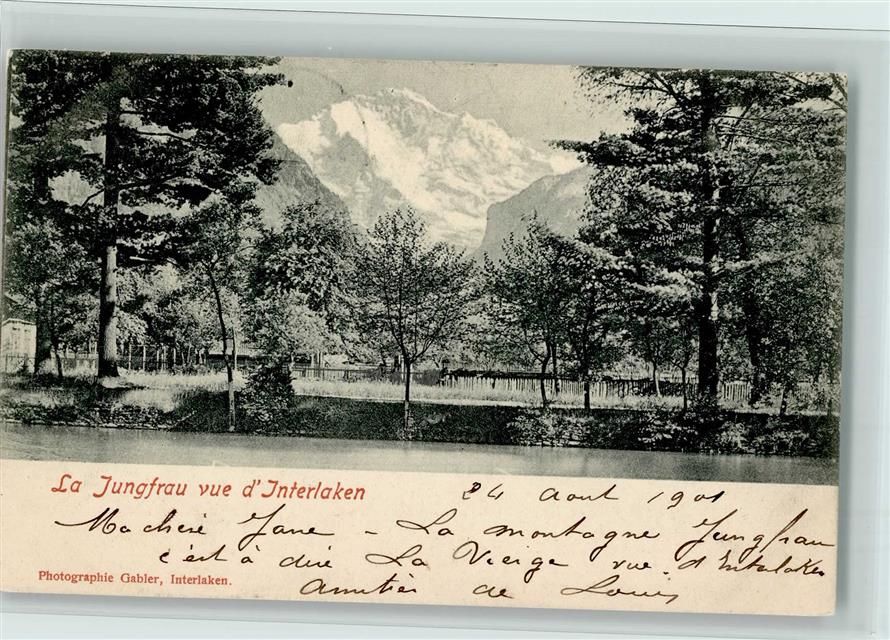 La Jungfrau vue d'Interlaken
24 Aout 1901
Ma chère Jane - La montagne Jungfrau
c'est à dire La Vierge vue d'Interlaken
Photographie Gabler, Interlaken.
Amitiés de Louis